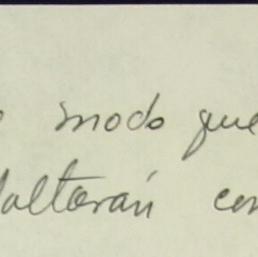 modo que
faltarán con